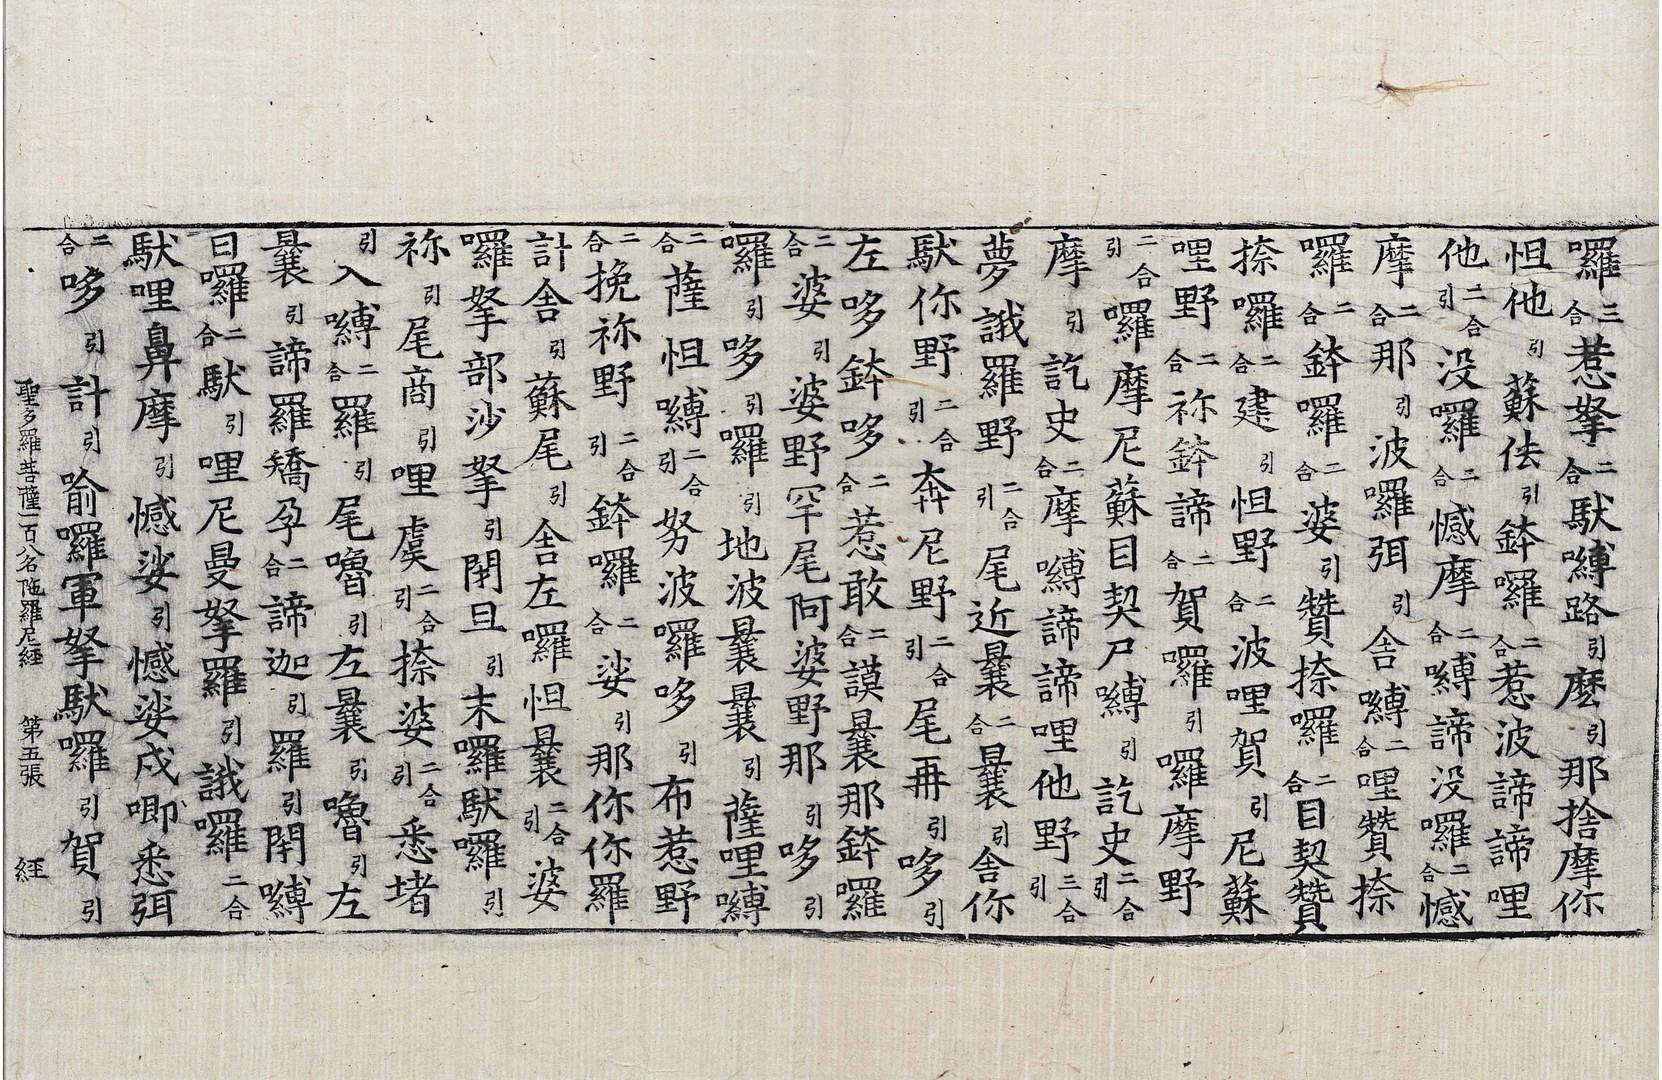 囉三合惹拏二合馱嚩路引麽引那捨摩你
怛他引蘇佉引鉢囉二合惹波諦諦哩
他二合引没羅二合憾摩二合嚩諦没囉二合憾
摩二合那引波囉弭引舍嚩二合哩贊捺
囉二合鉢囉二合婆引贊捺羅二合目契贊
捺囉二合建引怛野二合波哩賀引尼蘇
哩野二合祢鉢諦二合賀囉引囉摩野
二合引囉摩尼蘇目契尸嚩引訖史二合引
摩引訖史二合摩嚩諦諦哩他野三合引
夢誐羅野二合引尾近曩二合曩舍你
馱你野二合引奔尼野二合引尾再引哆引
左哆鉢哆二合惹敢二合謨曩那鉢羅
二合婆引婆野罕尾阿婆野那引哆引
囉引哆引囉引地波曩曩引薩哩嚩
二合薩怛嚩二合引努波囉哆引布惹野
二合挽祢野二合引鉢囉二合娑引那你你羅
計舍引蘇尾引舍左囉怛曩二合引婆
囉拏部沙拏引閉旦引末囉馱囉引
祢引尾商引哩虞二合引捺婆二合引悉堵
引入嚩二合羅引尾嚕引左曩引嚕引左
曩引諦羅矯孕二合諦迦引羅引閉嚩
曰囉二合馱引哩尼曼拏羅引誐囉二合
馱哩鼻摩引憾娑引憾娑戍唧悉弭
二合哆引計引喻囉軍拏馱囉引賀引
聖多羅菩薩一百八名陁羅尼經　第五張　經